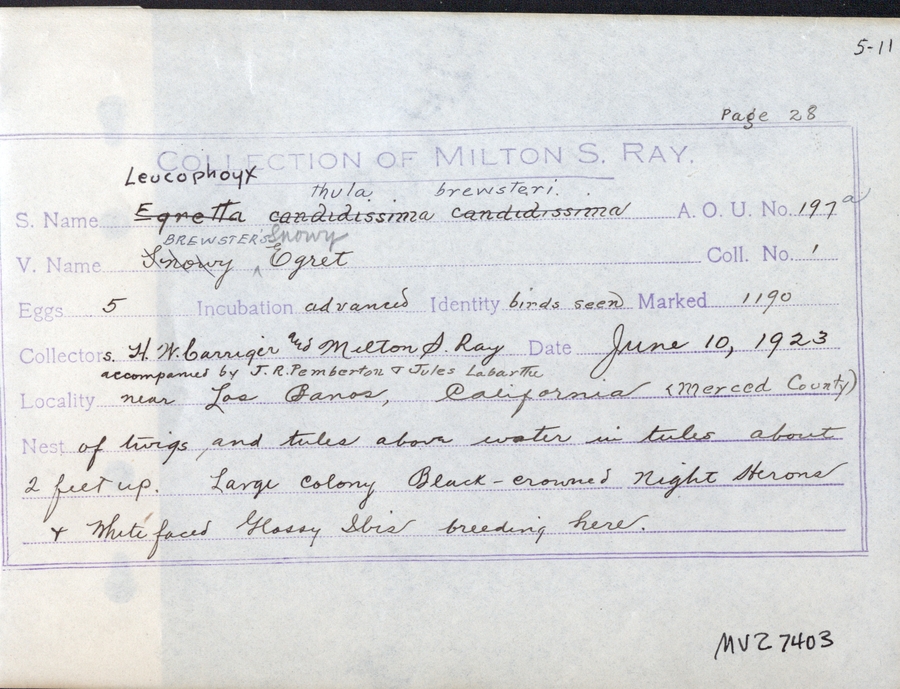 5-11
Page 28
COLLECTION OF MILTON S. RAY.
Leucophoyx thula brewsteri.
S. Name Egretta candidissima candidissima A. O. U. No. 197a
BREWSTER'S Snowy
V. Name Snowy Egret Coll. No. 1
Eggs 5 Incubation advanced Identity birds seen Marked 1190
Collectors. H. W. Carriger and Milton S. Ray Date June 10, 1923
accompanied by J. R. Pemberton & Jules Labarthe
Locality near Los Banos, California (Merced County)
Nest of twigs and tules above water in tules about
2 feet up. Large colony Black-crowned Night Herons
& White faced Glossy Ibis breeding here.
MVZ 7403